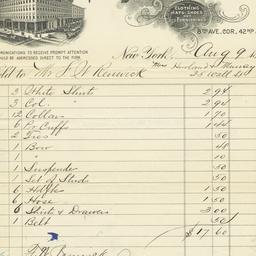 CLOTHING
HATS, SHOES
FURNISHING
8TH AVE., COR. 42ND
MUNICATIONS TO RECEIVE PROMPT ATTENTION
OULD BE ADDRESSED DIRECT TO THE FIRM.
New York, Aug 9
Sold to Mr J W Renwick
c/o Howland & Murray
35 Wall St
2 White Shirts 2 94
3 Col. " 2 94
12 Collars 1 70
6 Pr Cuffs 1 44
2 Ties 50
1 Bow 48
1 " 10
1 Suspender 50
1 Set of Studs 50
6 Hdkfs 1 50
6 Hose 1 50
6 Shirts & Drawers 3 00
1 Belt 50
$17 60